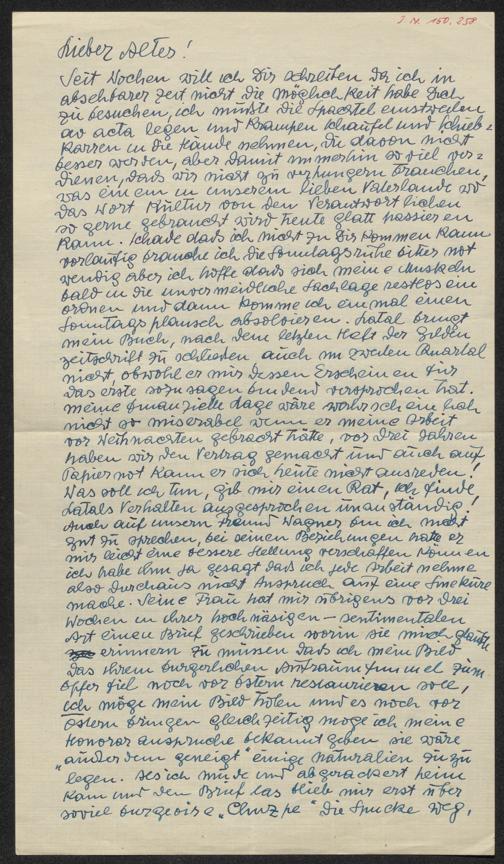 J. N. 160.258
Lieber Alter!
Seit Wochen will ich Dir schreiben da ich in
absehbarer Zeit nicht die Möglichkeit habe Dich
zu besuchen, ich mußte die Spachtel einstweilen
ad acta legen und Krampen Schaufel und Schieb=
Karren in die Hände nehmen, die davon nicht
besser werden, aber damit immerhin so viel ver=
dienen, dass wir nicht zu verhungern brauchen,
was einem in unserem lieben Vaterlande wo
das Wort Kultur von den Verantwortlichen
so gerne gebraucht wird heute glatt passieren
kann. Schade dass ich nicht zu Dir kommen kann
vorläufig brauche ich die Sonntagsruhe bitter not
wendig aber ich hoffe dass sich meine Muskeln
bald in die unvermeidliche Sachlage restlos ein
ordnen und dann komme ich einmal einen
Sonntagsplausch absolvieren. Latal bringt
mein Buch, nach dem letzten Heft der Gilden
zeitschrift zu schließen auch im zweiten Quartal
nicht, obwohl er mir dessen Erscheinen für
das erste sozusagen bindend versprochen hat.
Meine finanzielle Lage wäre wahrscheinlich
nicht so miserabel wenn er meine Arbeit
vor Weihnachten gebracht hätte, vor drei Jahren
haben wir den Vertrag gemacht und auch auf
Papiernot kann er sich heute nicht ausreden!
Was soll ich tun, gib mir einen Rat, ich finde
Latals Verhalten ausgesprochen unanständig!
Auch auf unsern Freund Wagner bin ich nicht
gut zu sprechen, bei seinen Beziehungen hätte er
mir leicht eine bessere Stellung verschaffen können
ich habe ihm ja gesagt dass ich jede Arbeit nehme
also durchaus nicht Anspruch auf eine Sinekure
mache. Seine Frau hat mir übrigens vor drei
Wochen in ihrer hochnäsigen – sentimentalen
Art einen Brief geschrieben worin sie mich glaubte
erinnern zu müssen dass ich mein Bild
das ihrem bürgerlichen Aufräumfimmel zum
Opfer fiel noch vor Ostern restaurieren soll,
ich möge mein Bild holen und es noch vor
Ostern bringen gleichzeitig möge ich meine
Honoraransprüche bekanntgeben sie wäre
"außerdem geneigt" einige Naturalien zuzu
legen. Als ich müde und abgerackert heim
kam und den Brief las blieb mir erst über
soviel burgeoise "Chuzpe" die Spucke weg,